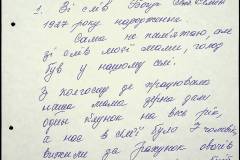 1. Зі слів
1927 року народження
Сама не пам'ятаю, але
зі слів моєї мами, голод
був у нашому селі.
З колгоспу де працювала
наша мама дали
один клунок на весь рік,
а нас в сім'ї було 7 чоловік,
вижили за рахунок овочів